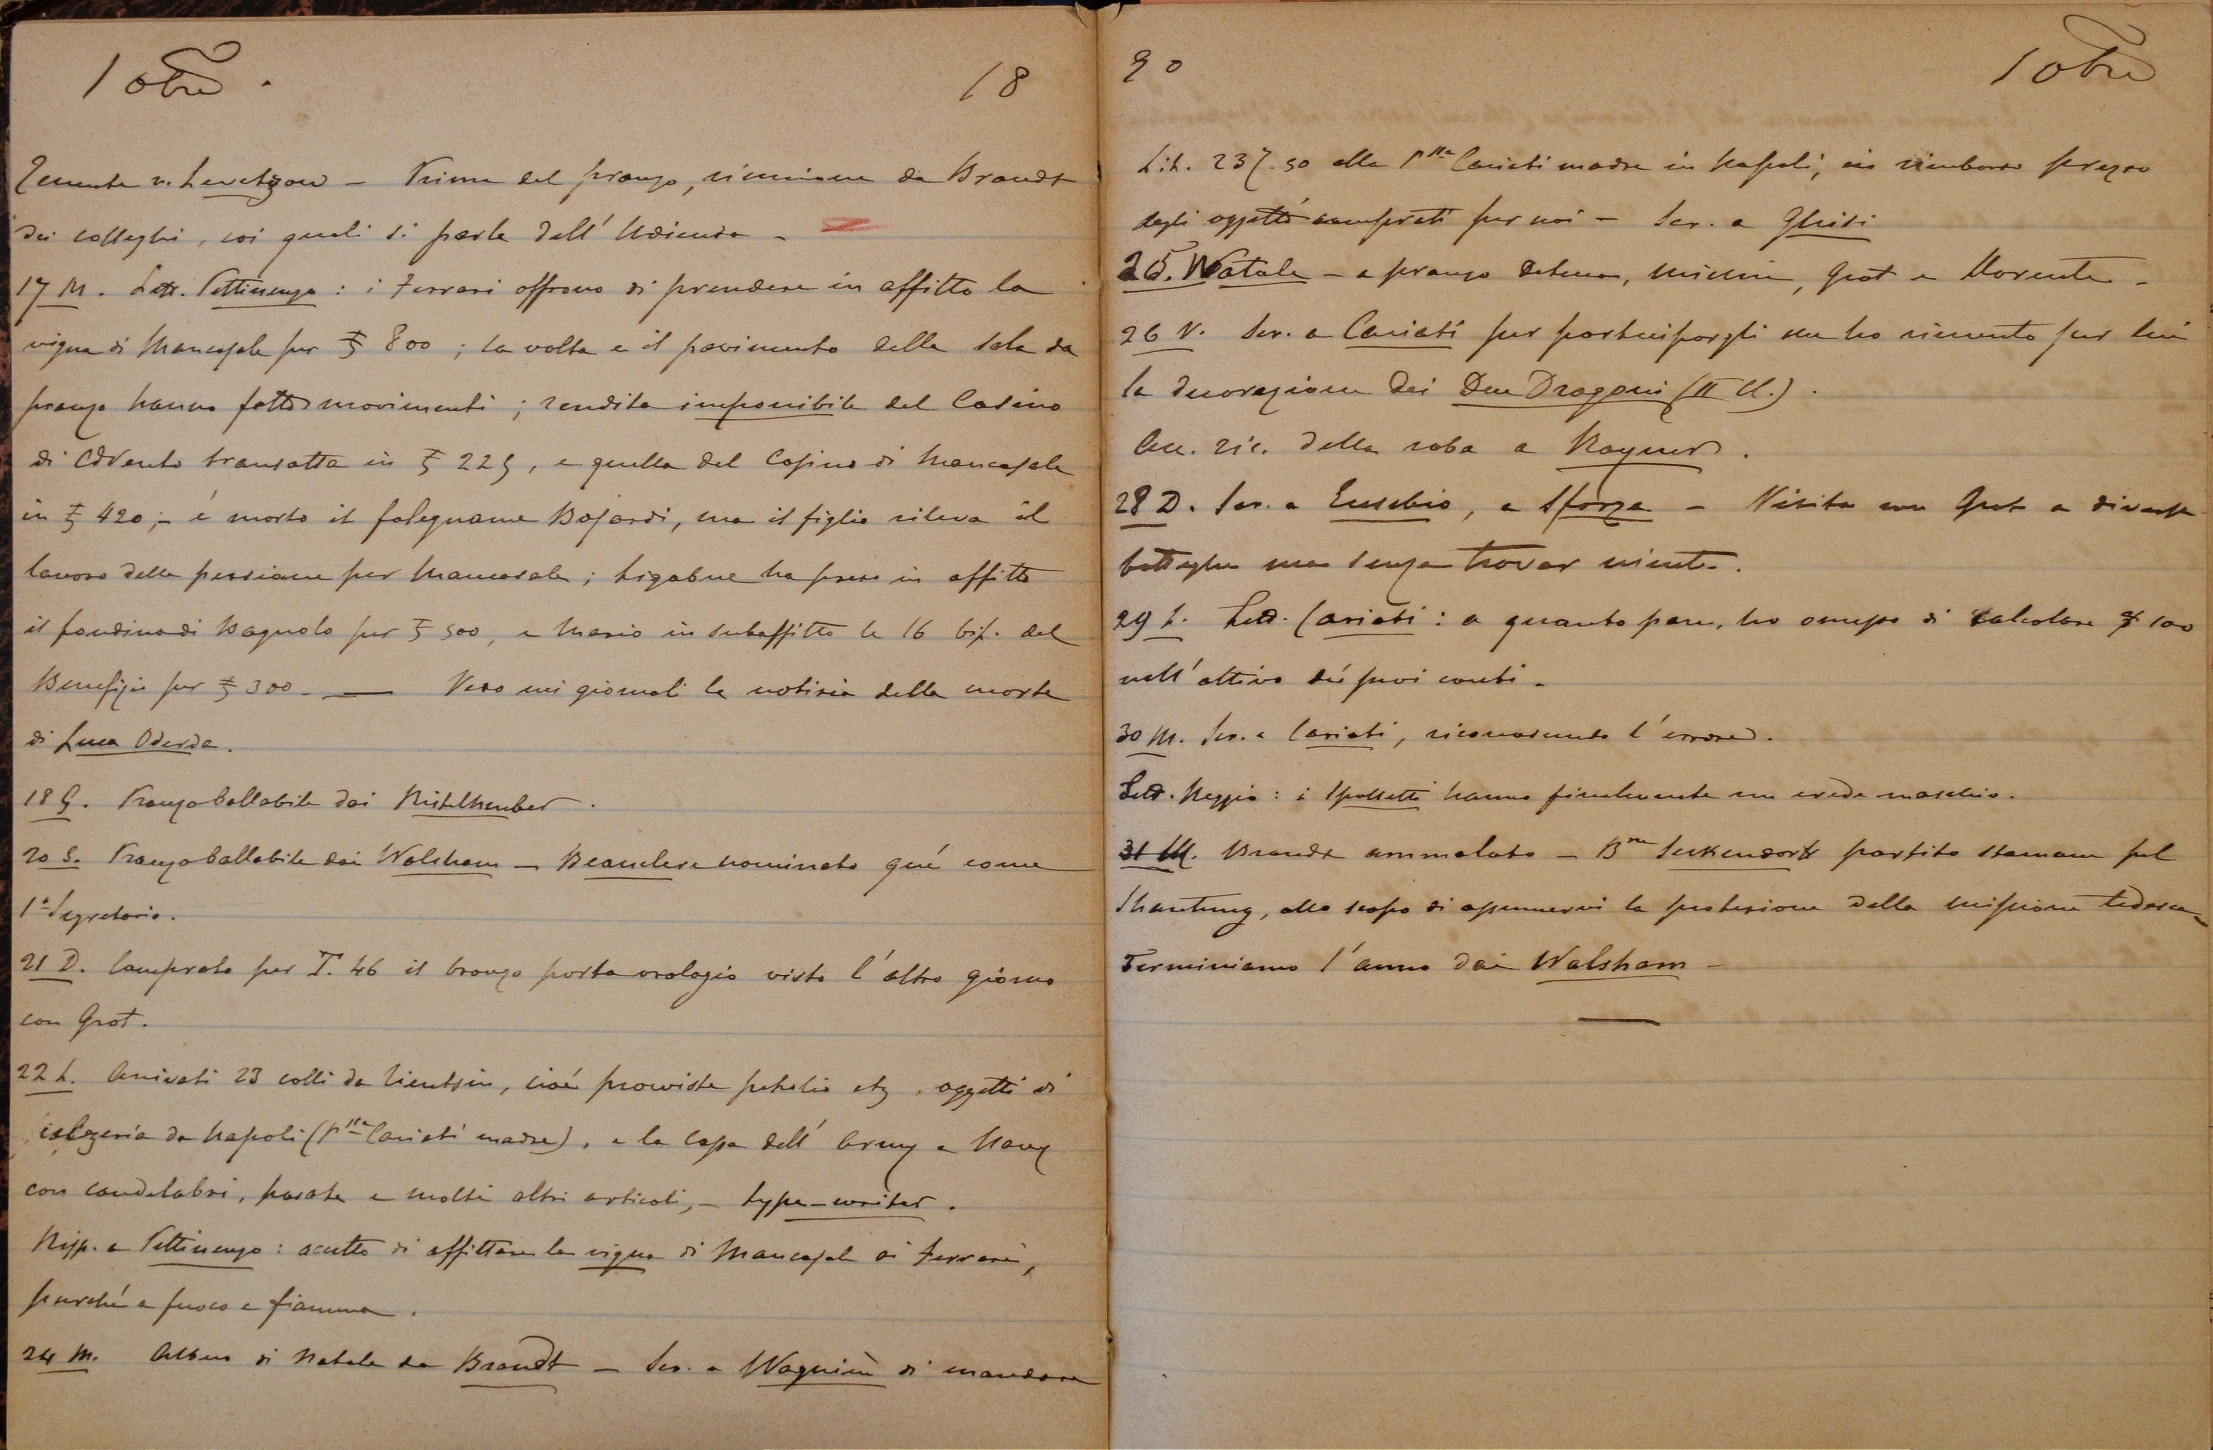 1 0bre. 18
Tenente v. Levetzow — Prima del pranzo, riunione da Brandt
dei colleghi, coi quali si parla dell'Udienza —
17 M. Lett. Pettinengo: i Ferrari offrono di prendere in affitto la
vigna di Mancasale per £ 800; la volta e il pavimento della sala da
pranzo hanno fatto movimenti; rendita imponibile del Casino
di Cdvento transatta in £ 225, e quella del Casino di Mancasale
in £ 420; – è morto il falegname Bojardi, ma il figlio rileva il
lavoro delle persiane per Mancasale; Ligabue ha preso in affitto
il fondino di Bagnolo per £ 500, e Mario in subaffitto le 16 bif. del
Benefizio per £ 300 — Vedo nei giornali la notizia della morte
di Luca Oderda.
18 G. Pranzo ballabile dai Ristelhueber.
20 S. Pranzo ballabile dai Walsham — Beauclerc nominato qui come
1° Segretario.
21 D. Comprato per T. 46 il bronzo porta orologio visto l'altro giorno
con Grot.
22 L. Arrivati 23 colli da Tientsin, cioè provviste petrolio etz, oggetti di
da Napoli (Pssa Cariati madre), e la Cassa dell'Army e Navy
con candelabri, posate e molti altri articoli, – type-writer.
Risp. a Pettinengo: accetto di affittare la vigna di Mancasale ai Ferrari,
purché a fuoco e fiamma.
24 M. Albero di Natale da Brandt — Scr. a Wagnière di mandare
90 1 0bre
Lit. 237.50 alla Pssa Cariati madre in Napoli, in rimborso prezzo
degli oggetti comprati per noi — Scr. a Ghisi
25. Natale — a pranzo Grot e
26 V. Scr. a Cariati per partecipargli che ho ricevuto per lui
la decorazione dei Due Dragoni (II Cl.).
Acc. ric. della roba a Rayner.
28 D. Scr. a Eusebio, a Sforza — Visita con Grot a diverse
botteghe ma senza trovar niente.
29 L. Lett. Cariati: a quanto pare, ho omesso di calcolare £ 100
nell'attivo dei suoi conti.
30 M. Scr. a Cariati, riconoscendo l'errore.
Lett. Reggio: i Spalletti hanno finalmente un erede maschio.
31 M. Brandt ammalato — Bne Seckendorff partito stamane pel
Shantung, allo scopo di assumervi la protezione della missione tedesca —
Terminiamo l'anno dai Walsham —